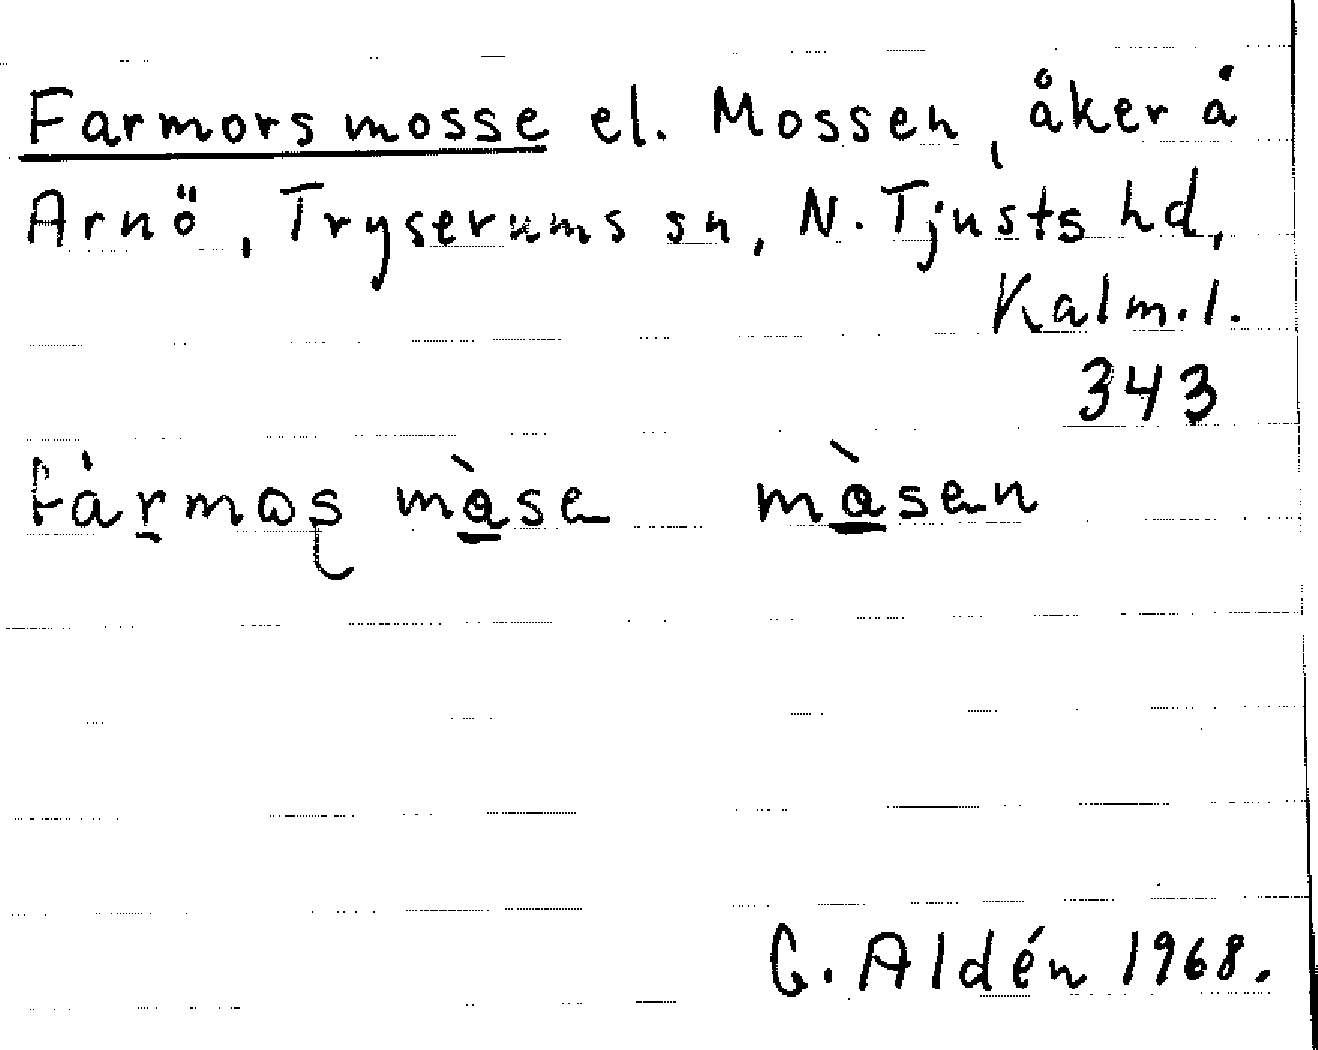 Farmors mosse el. Mossen, åker å
Arnö, Tryserums sn, N. Tjusts hd,
Kalm. l.
343
fàrmos màse màsen
G. Aldén 1968.